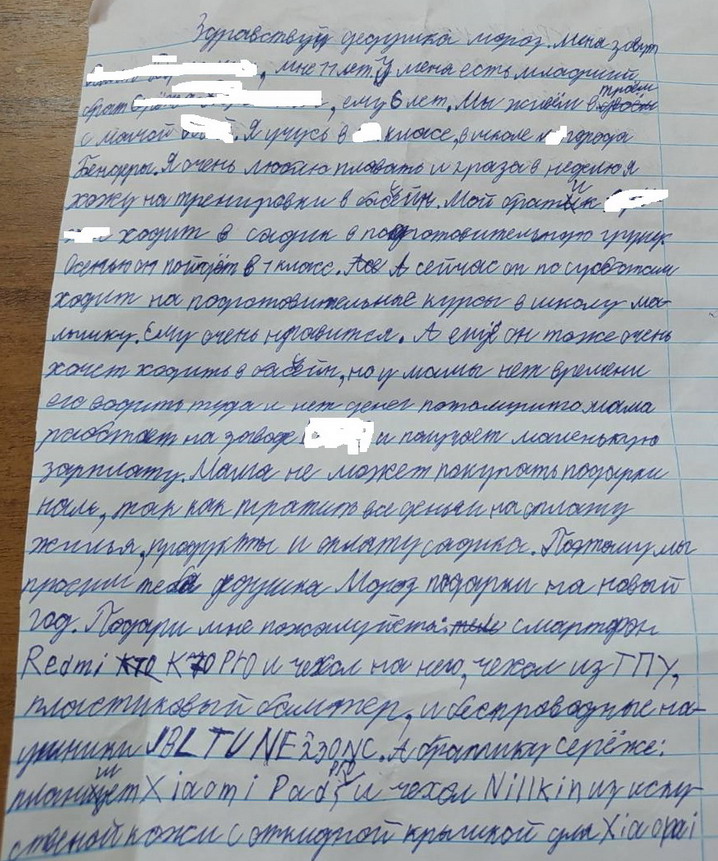 Здравствуй дедушка мороз. Меня зовут
, мне 11 лет У меня есть младший
брат , ему 6 лет. Мы живём в троём
с мамой . Я учусь в класс, в школе города
Бендеры. Я очень люблю плавать и 2 раза в неделю я
хожу на тренировки в басейн. Мой братик
ходит в садик в подготовительную групу.
Осенью он пойдёт в 1 класс. А сейчас он по суботам
ходит на подготовительные курсы в школу ма-
лышку. Ему очень нравится. А ещё он тоже очень
хочет ходить в басейн, но у мамы нет времени
его водить туда и нет денег потомушто мама
работает на заводе и получает маленькую
зарплату. Мама не может покупать подарки
нам, так как тратит все деньги на оплату
жилья, продукты и оплату садика. Поэтому мы
просим тебя дедушка Мороз подарки на новый
год. Подари мне пожалуйста: смартфон
Redmi K70 Pro и чехол на него, чехол из ТПУ,
пластиковый бампер, и беспроводные на-
ушники JBL TUNE 230NC. А братику серёже:
планшет Xiaomi Pad и чехол Nillkin из иску-
ственой кожи с откидной крышкой для